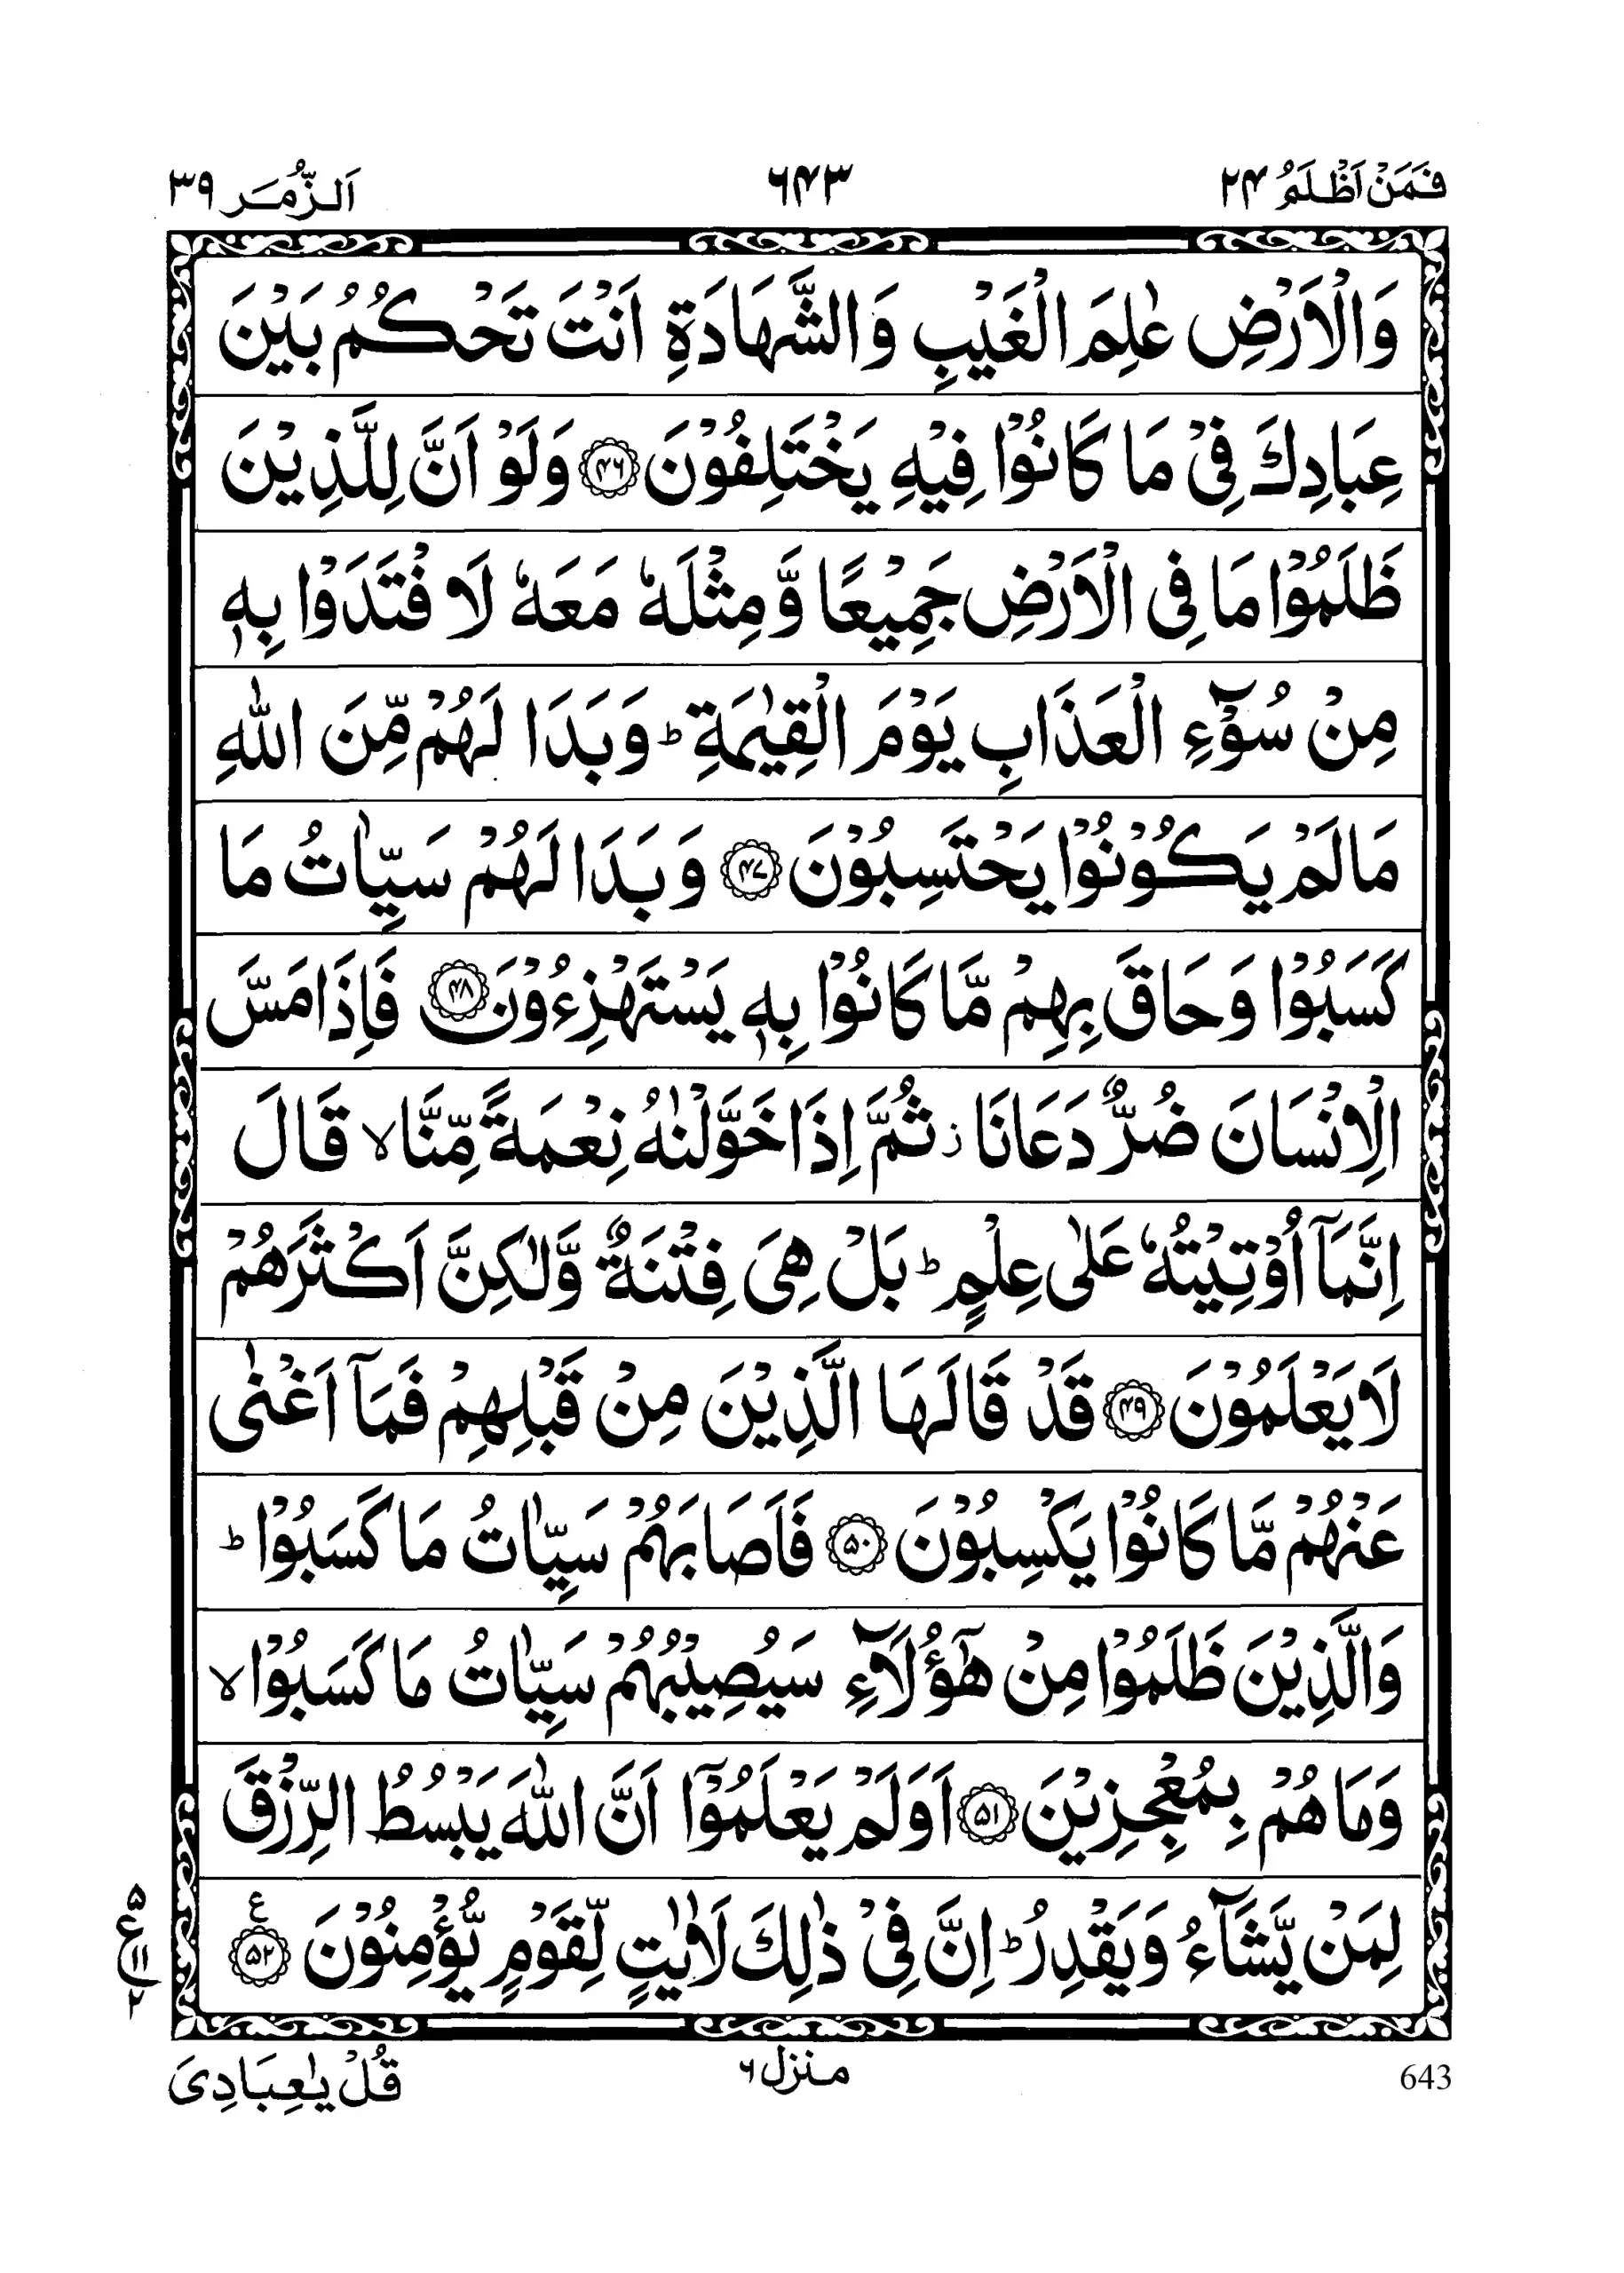 فَمَنْ اَظْلَمُ ۲۴ ۶۴۳ اَلزُّمَر ۳۹
وَالْاَرْضِ عٰلِمَ الْغَيْبِ وَالشَّهَادَةِ اَنْتَ تَحْكُمُ بَيْنَ
عِبَادِكَ فِيْ مَا كَانُوْا فِيْهِ يَخْتَلِفُوْنَ ﴿۴۶﴾ وَلَوْ اَنَّ لِلَّذِيْنَ
ظَلَمُوْا مَا فِى الْاَرْضِ جَمِيْعًا وَّمِثْلَهٗ مَعَهٗ لَا فْتَدَوْا بِهٖ
مِنْ سُوْٓءِ الْعَذَابِ يَوْمَ الْقِيٰمَةِ ؕ وَبَدَا لَهُمْ مِّنَ اللّٰهِ
مَا لَمْ يَكُوْنُوْا يَحْتَسِبُوْنَ ﴿۴۷﴾ وَ بَدَا لَهُمْ سَيِّاٰتُ مَا
كَسَبُوْا وَحَاقَ بِهِمْ مَّا كَانُوْا بِهٖ يَسْتَهْزِءُوْنَ ﴿۴۸﴾ فَاِذَا مَسَّ
الْاِنْسَانَ ضُرٌّ دَعَانَا ز ثُمَّ اِذَا خَوَّلْنٰهُ نِعْمَةً مِّنَّا ۙ قَالَ
اِنَّمَآ اُوْتِيْتُهٗ عَلٰى عِلْمٍ ؕ بَلْ هِىَ فِتْنَةٌ وَّلٰكِنَّ اَكْثَرَهُمْ
لَا يَعْلَمُوْنَ ﴿۴۹﴾ قَدْ قَالَهَا الَّذِيْنَ مِنْ قَبْلِهِمْ فَمَآ اَغْنٰى
عَنْهُمْ مَّا كَانُوْا يَكْسِبُوْنَ ﴿۵۰﴾ فَاَصَابَهُمْ سَيِّاٰتُ مَا كَسَبُوْا ؕ
وَالَّذِيْنَ ظَلَمُوْا مِنْ هٰٓؤُلَآءِ سَيُصِيْبُهُمْ سَيِّاٰتُ مَا كَسَبُوْا ۙ
وَمَا هُمْ بِمُعْجِزِيْنَ ﴿۵۱﴾ اَوَلَمْ يَعْلَمُوْٓا اَنَّ اللّٰهَ يَبْسُطُ الرِّزْقَ
لِمَنْ يَّشَآءُ وَيَقْدِرُ ؕ اِنَّ فِيْ ذٰلِكَ لَاٰيٰتٍ لِّقَوْمٍ يُّؤْمِنُوْنَ ﴿۵۲﴾ ع
۵
ع ۱۱
۲
643 منزل ۶ قُلْ يٰعِبَادِىَ